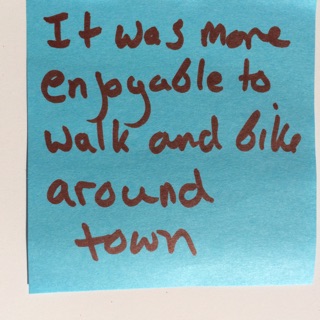 It was more
enjoyable to
walk and bike
around
town